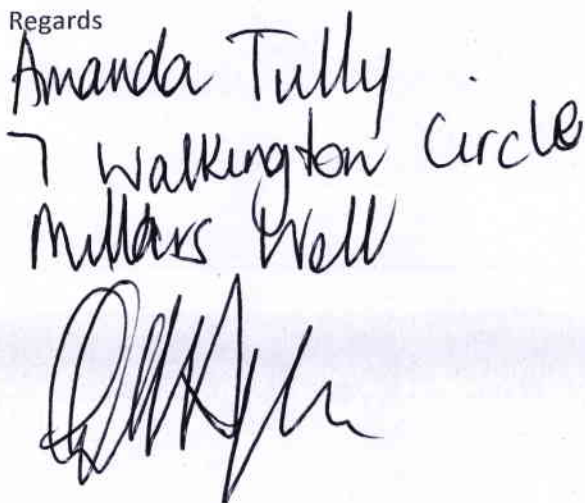 Regards
Amanda Tully
7 Walkington Circle
Millars Well